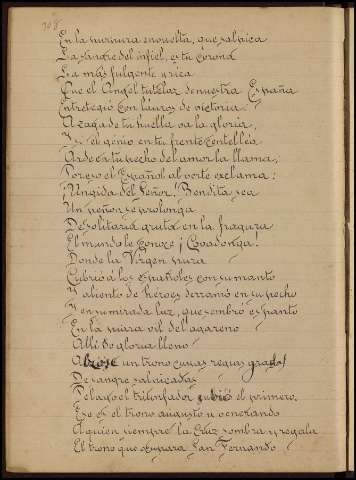 108
En la purpura envuelta, que salpica
La sangre del infiel, es tu corona
La mas fulgente y rica
Que el Angel tutelar de nuestra España
Entretegió con lauros de victoria.
A zaga de tu huella va la gloria,
Y si el génio en tu frente centelléa
Arde en tu pecho del amor la llama,
Por eso el Español al verte exclama:
¡Ungida del Señor! Bendita sea
Un peñon se prolonga
De solitaria gruta en la fragura
El mundo le conoce ¡Covadonga!
Donde la Virgen pura
Cubrió á los españoles con su manto
Y aliento de héroes derramó en su pecho
Y en su mirada luz, que sembró espanto
En la piara vil del agareno
Alli de gloria lleno
Alzose un trono cuyas regias gradas
De sangre salpicadas
Pelayo el triunfador subió el primero.
Ese es el trono augusto y venerando
A quien siempre la Cruz sombra y regala
El trono que ocupara San Fernando